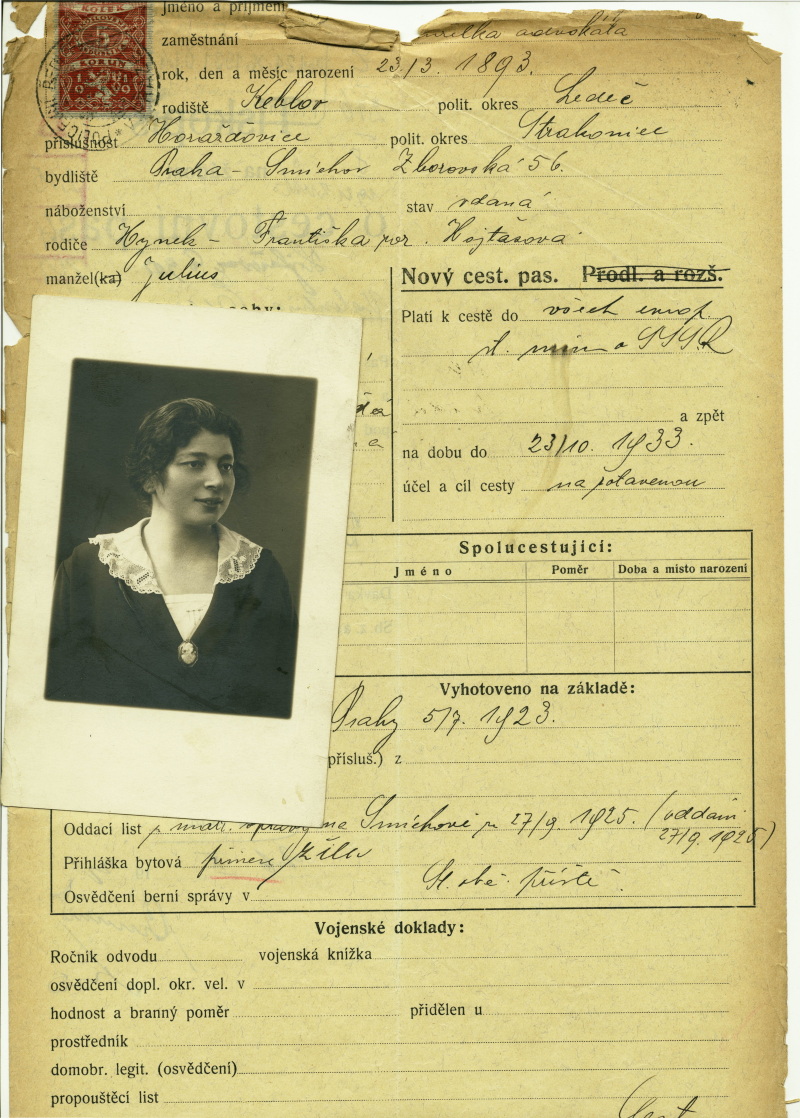 KOLEK
5
KORUN
1919
Jméno a příjmení
zaměstnání advokáta
rok, den a měsíc narození 23/3. 1893.
rodiště Keblov polit. okres Ledeč
příslušnost Horažďovice polit. okres Strakonice
bydliště Praha - Smíchov Zborovská 56.
náboženství stav vdaná
rodiče Hynek - Františka roz. Hojtašova
manžel(ka) Julius
Nový cest. pas. Prodl. a rozš.
Platí k cestě do všech evrop.
st. mimo SSSR
a zpět
na dobu do 23/10. 1933.
účel a cíl cesty na zotavenou
Spolucestující:
Jméno Poměr Doba a místo narození
Vyhotoveno na základě:
Prahy 5/7. 1923.
přísluš.) z
Oddací list na Smíchově 27/9. 1925. (oddáni
27/9. 1925)
Přihláška bytová
Osvědčení berní správy v
Vojenské doklady:
Ročník odvodu vojenská knížka
osvědčení dopl. okr. vel. v
hodnost a branný poměr přidělen u
prostředník
domobr. legit. (osvědčení)
propouštěcí list